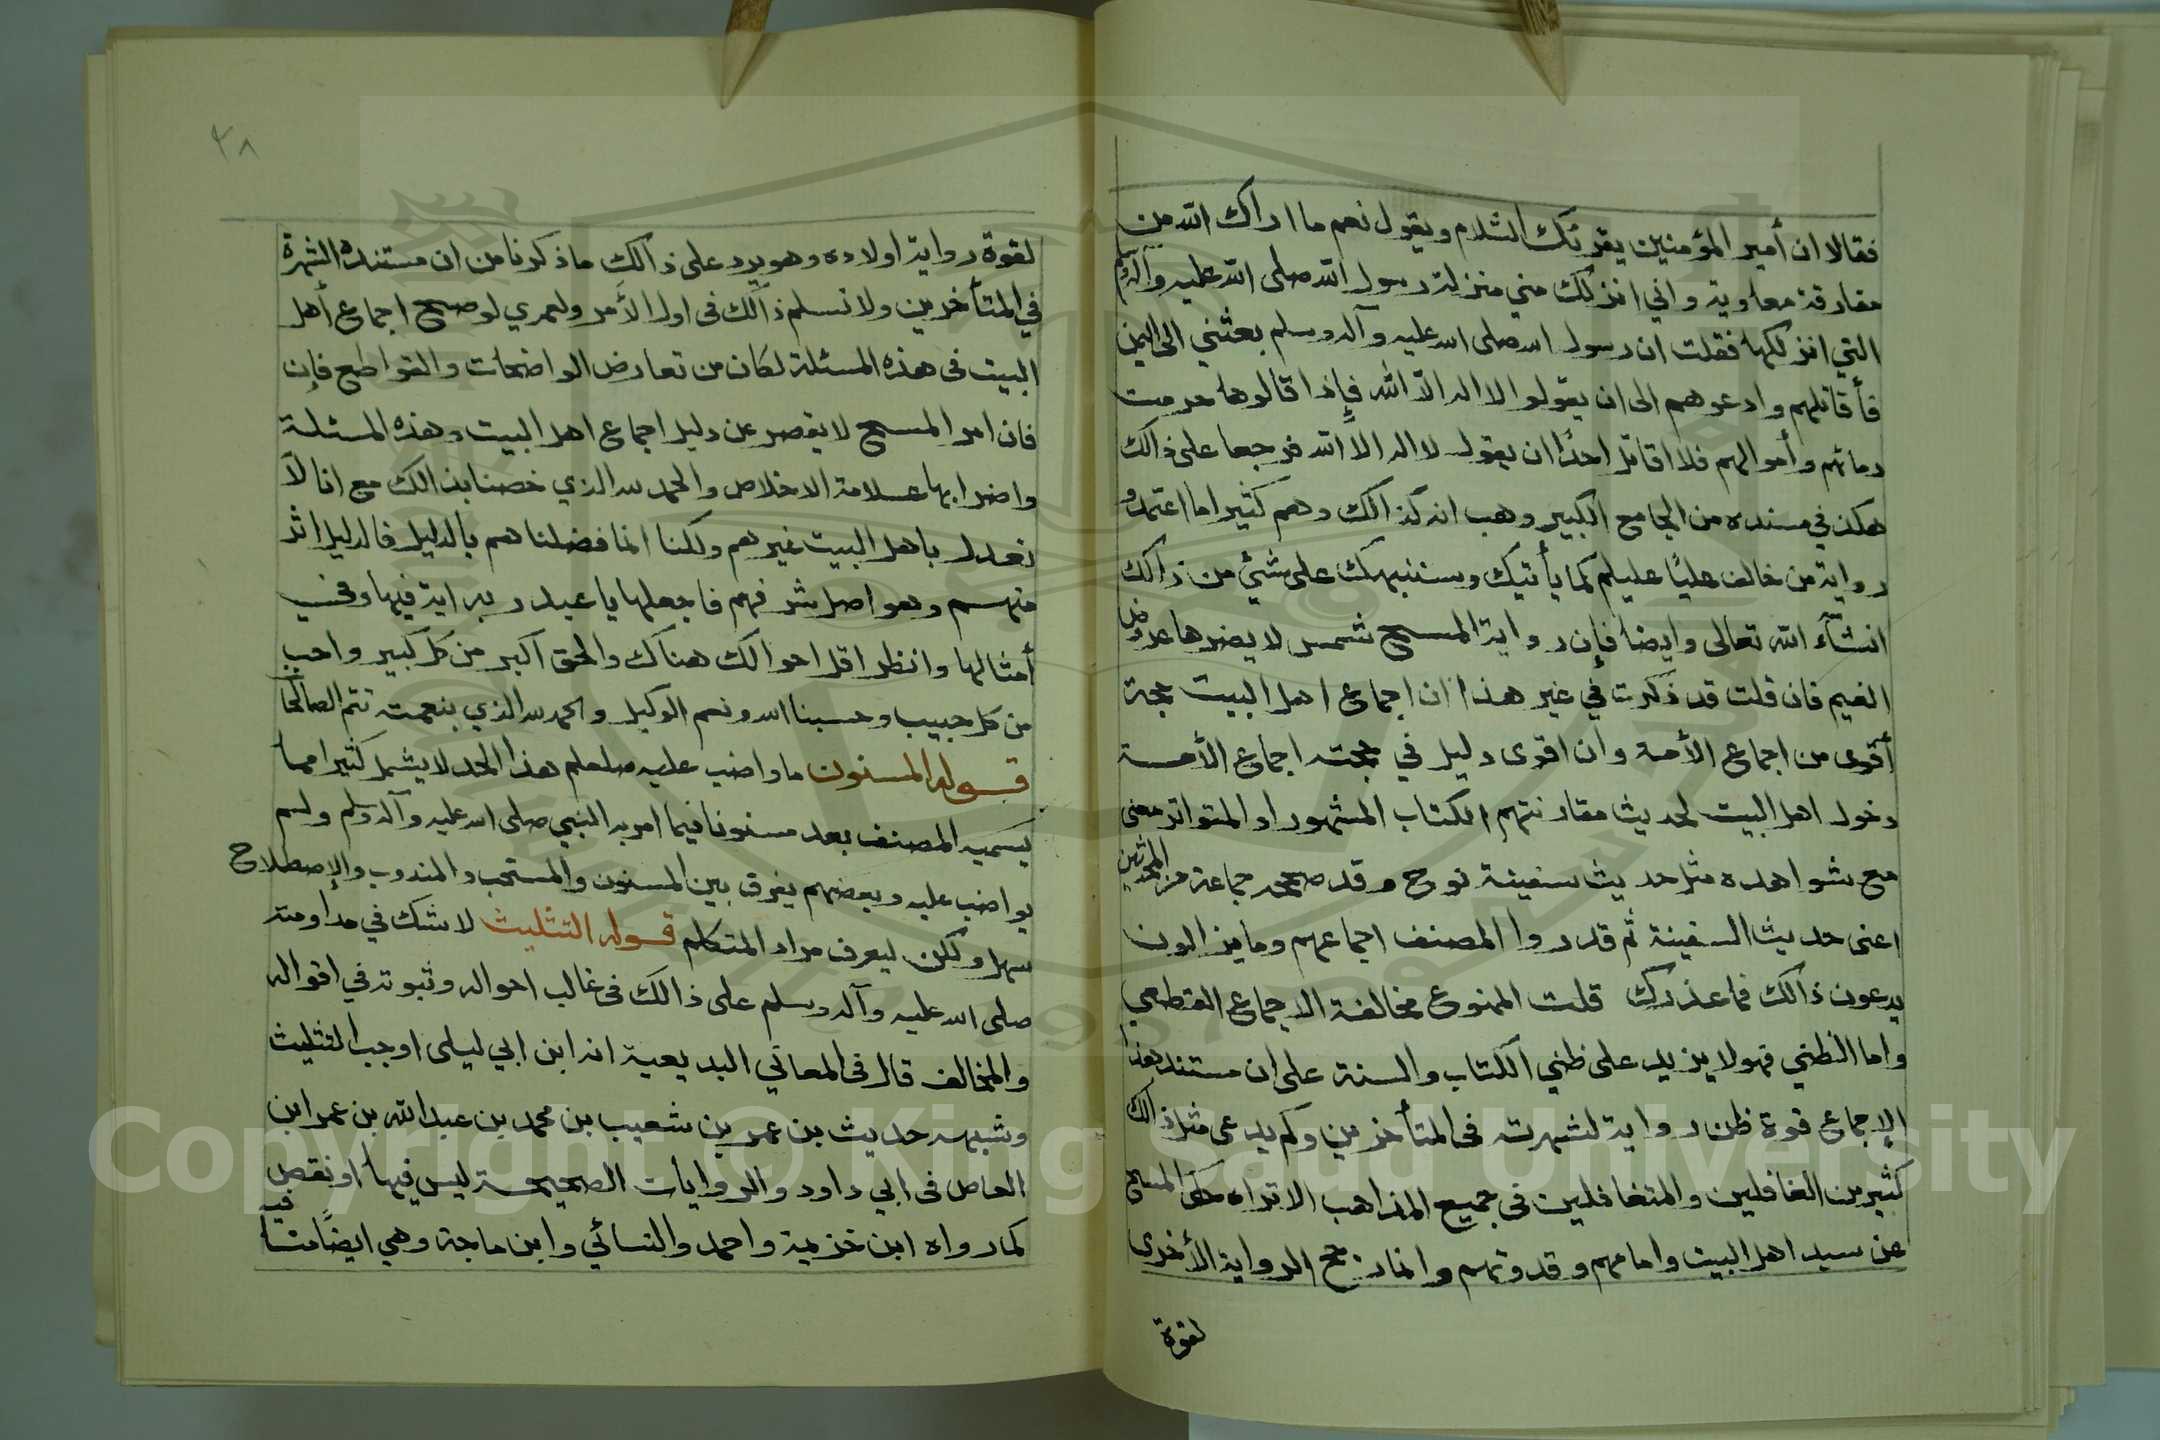 فقالا ان أمير المؤمنين يقرئك السلام ويقول نعم ما اراك الله من
مفارقة معاوية واني انزلك مني منزلة رسول الله صلى الله عليه وآله وسلم
التي انزلكها فقلت ان رسول الله صلى الله عليه وآله وسلم بعثني الى اليمن
فأقاتلهم وادعوهم الى ان يقولوا لا اله الا الله فإذا قالوها حرمت
دمائهم وأموالهم فلا اقاتل احدًا ان يقول لا اله الا الله فرجعا على ذالك
هكذ في مسنده من الجامع الكبير وهب انه كذالك وهم كثير اما اعتمدو
رواية من خالف عليًا عليلم كما يأتيك وسننبهك على شيئ من ذالك
انشآء الله تعالى وايضا فإن رواية المسح شمس لا يضرها عروض
الغيم فان قلت قد ذكرت في غير هذا ان اجماع اهل البيت حجة
أقوى من اجماع الأمة وان اقوى دليل في حجته اجماع الأمة
دخول اهل البيت لحديث مقارنتهم الكتاب المشهور او المتواتر معنى
مع شواهده مثل حديث سفينة نوح وقد صححه جماعة من المحدثين
اعنى حديث السفينة ثم قد روا المصنف اجماعهم وما يزالون
يدعون ذالك فما عذرك قلت الممنوع مخالفة الاجماع القطعي
واما الظني فهو لا يزيد على ظني الكتاب والسنة على ان مستند هذا
الإجماع قوة ظن رواية لشهرته فى المتأخرين وكم يدعى مثل ذالك
كثير من الغافلين والمتغافلين فى جميع المذاهب الا تراه حكى المسح
عن سيد اهل البيت وامامهم وقدوتهم وانما رجح الرواية الأخرى
لقوة
٣٨
لقوة رواية اولاده وهو يرد على ذالك ما ذكرنا من ان مستنده الشهرة
في المتأخرين ولا نسلم ذالك فى اول الأمر ولعمري لو صح اجماع أهل
البيت فى هذه المسئلة لكان من تعارض الواضحات والقواطع فإن
فان امر المسح لا يقصر عن دليل اجماع اهل البيت وهذه المسئلة
واضرابها علامة الاخلاص والحمد لله الذي خصنا بذالك مع انا لا
نعدل باهل البيت غيرهم ولكنا انما فضلناهم بالدليل فالدليل اثر
منهم وهو اصل شرفهم فاجعلها يا عبد ربه اية فيها وفي
أمثالها وانظر اقل احوالك هناك والحق اكبر من كل كبير واحب
من كل حبيب وحسبنا الله ونعم الوكيل والحمد لله الذي بنعمته تتم الصالحات
قوله المسنون ما واضب عليه صلعلم هذا الحد لا يشمل كثيرا مما
يسميه المصنف بعد مسنونا فيما امر به النبي صلى الله عليه وآله وسلم ولم
يواضب عليه وبعضهم يفرق بين المسنون والمستحب والمندوب والإصطلاح
سهل ولكن ليعرف مراد المتكلم قوله التثليث لا شك في مداومته
صلى الله عليه وآله وسلم على ذالك فى غالب احواله وثبوته في اقواله
والمخالف قال فى المعاني البديعية انه ابن ابي ليلى اوجب التثليث
وشبهه حديث بن عمر بن شعيب بن محمد بن عبد الله بن عمر ابن
العاص فى ابي داود والروايات الصحيحة ليس فيها او نقص
كما رواه ابن خزيمة واحمد والنسائي وابن ماجة وهي ايضًا متا فيه
Copyright © King Saud University
1957